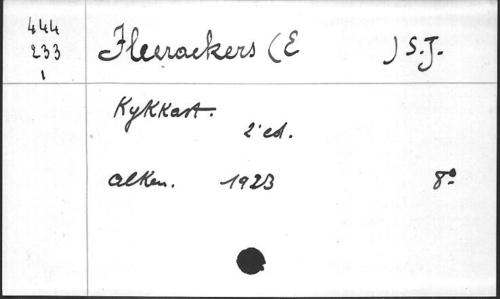 444
233
1
Fleerackers (E ) S.J.
Kykkast.
2e ed.
Alken. 1923 8º